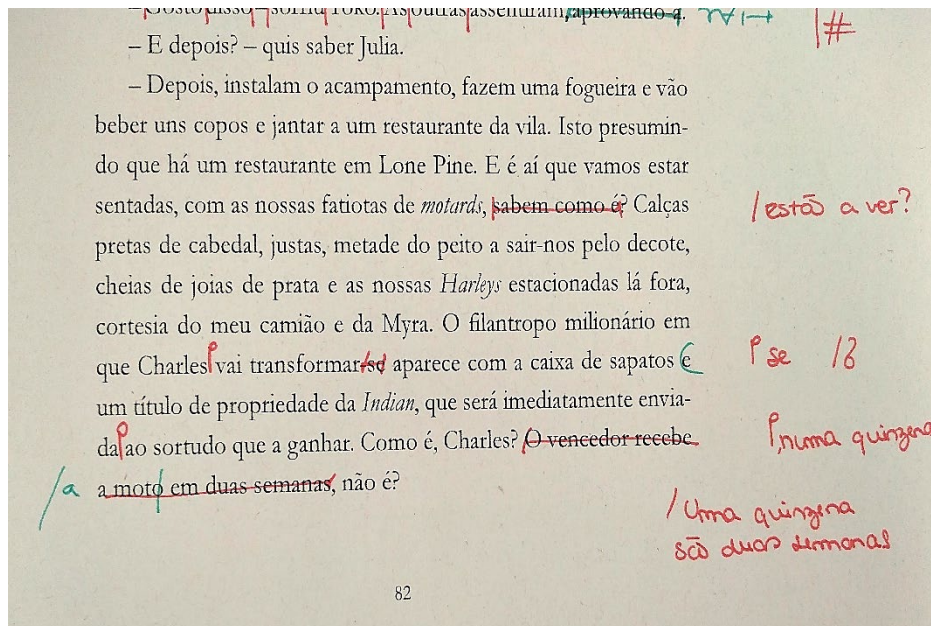 – Gosto disso – sorriu Yoko. As outras assentiram, aprovando-a.
– E depois? – quis saber Julia.
– Depois, instalam o acampamento, fazem uma fogueira e vão
beber uns copos e jantar a um restaurante da vila. Isto presumin-
do que há um restaurante em Lone Pine. E é aí que vamos estar
sentadas, com as nossas fatiotas de motards, sabem como é? Calças
/estão a ver?
pretas de cabedal, justas, metade do peito a sair-nos pelo decote,
cheias de joias de prata e as nossas Harleys estacionadas lá fora,
cortesia do meu camião e da Myra. O filantropo milionário em
que Charles vai transformar-se aparece com a caixa de sapatos e
se
um título de propriedade da Indian, que será imediatamente envia-
da ao sortudo que a ganhar. Como é, Charles? O vencedor recebe
,numa quinzena
/a
a moto em duas semanas, não é?
/Uma quinzena
são duas semanas
82